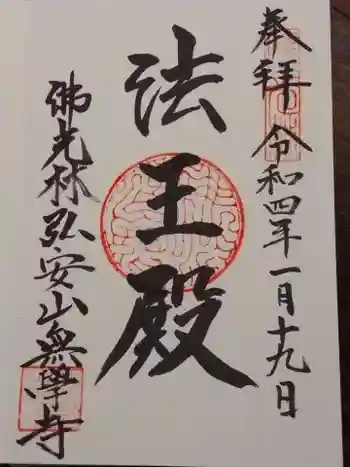 奉拝 令和四年一月十九日
法王殿
佛光林弘安山無學寺